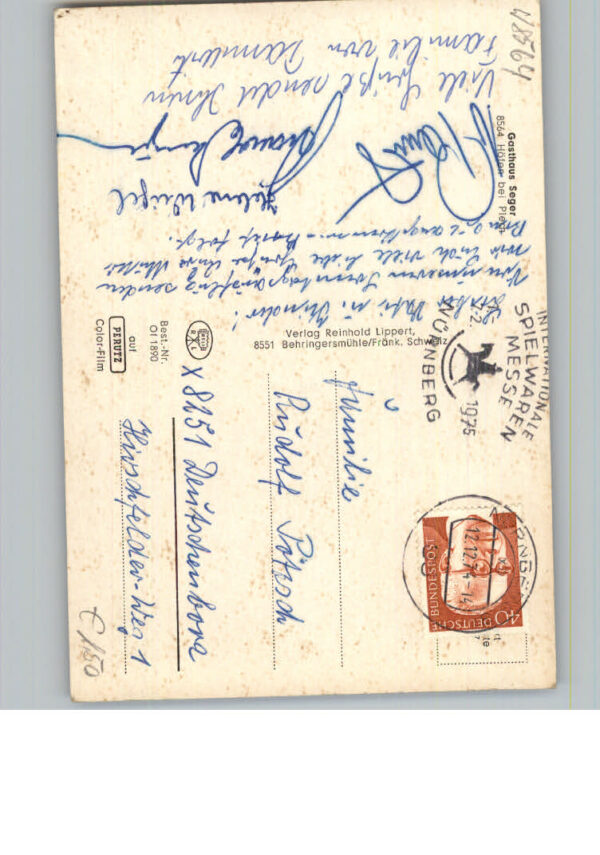 48564
Gasthaus Seger
8564 Höfen bei Plech
Lieber Vati u. Kinder!
Von unserem Sonntagsausflug senden
wir Euch viele liebe Grüße Eure Mutter
angekommen Brief folgt.
Helene Weigel
Viele Grüße sendet Ihnen
Familie von
Verlag Reinhold Lippert,
8551 Behringersmühle/Fränk. Schweiz
Best.-Nr.
Of 1890
auf
PERUTZ
Color-Film
INTERNATIONALE
SPIELWAREN
MESSE
NÜRNBERG
1975
DEUTSCHE
BUNDESPOST
40
NÜRNBERG
12.12.74-14
Familie
Rudolf Pötzsch
X 8251 Deutschenbora
Hirschfelder-Weg 1
€ 1,50